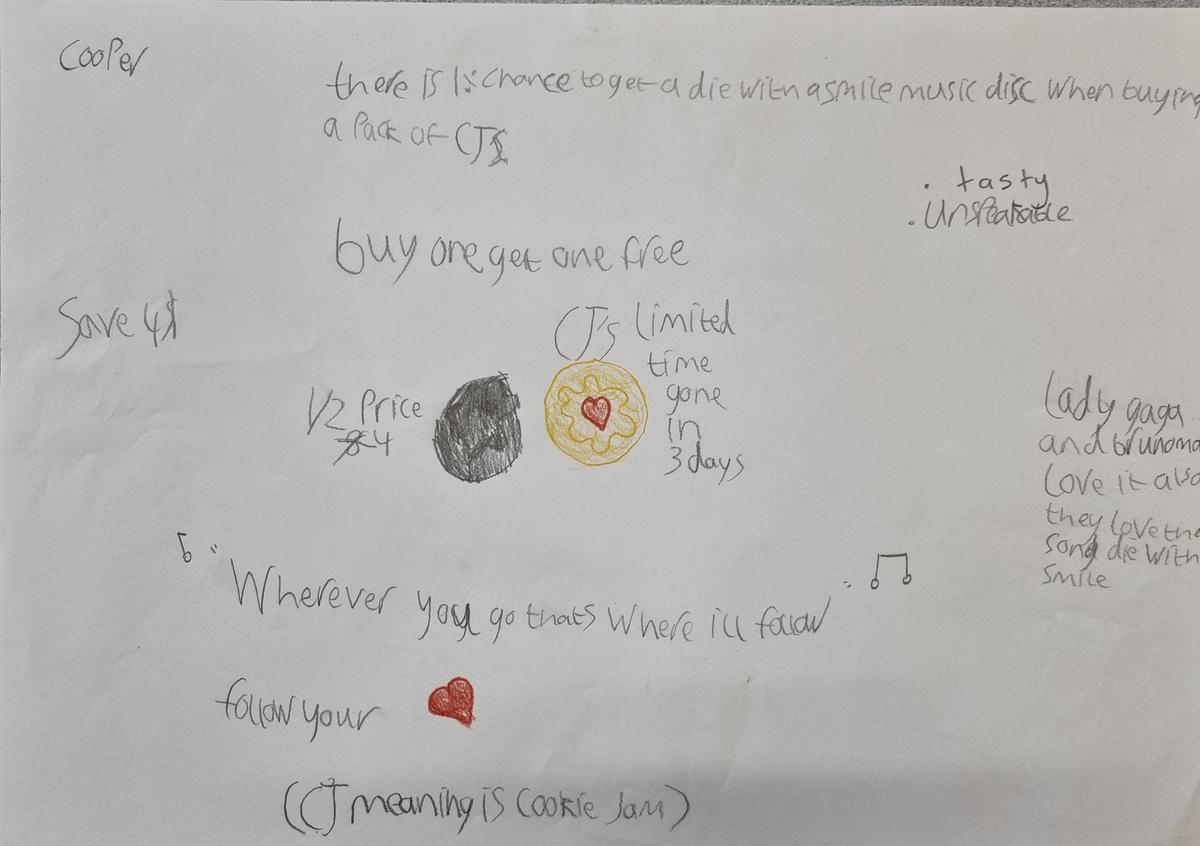 Cooper
there is 1% chance to get a die with a smile music disc when buying
a Pack of CJ's
. tasty
. Unspeakable
buy one get one free
Save 4$
CJ's limited
time
gone
in
3 days
1/2 Price
8 4
Lady gaga
and bruno ma
Love it also
they love the
song die with
smile
Wherever you go thats where ill follow
follow your
(CJ meaning is Cookie Jam)